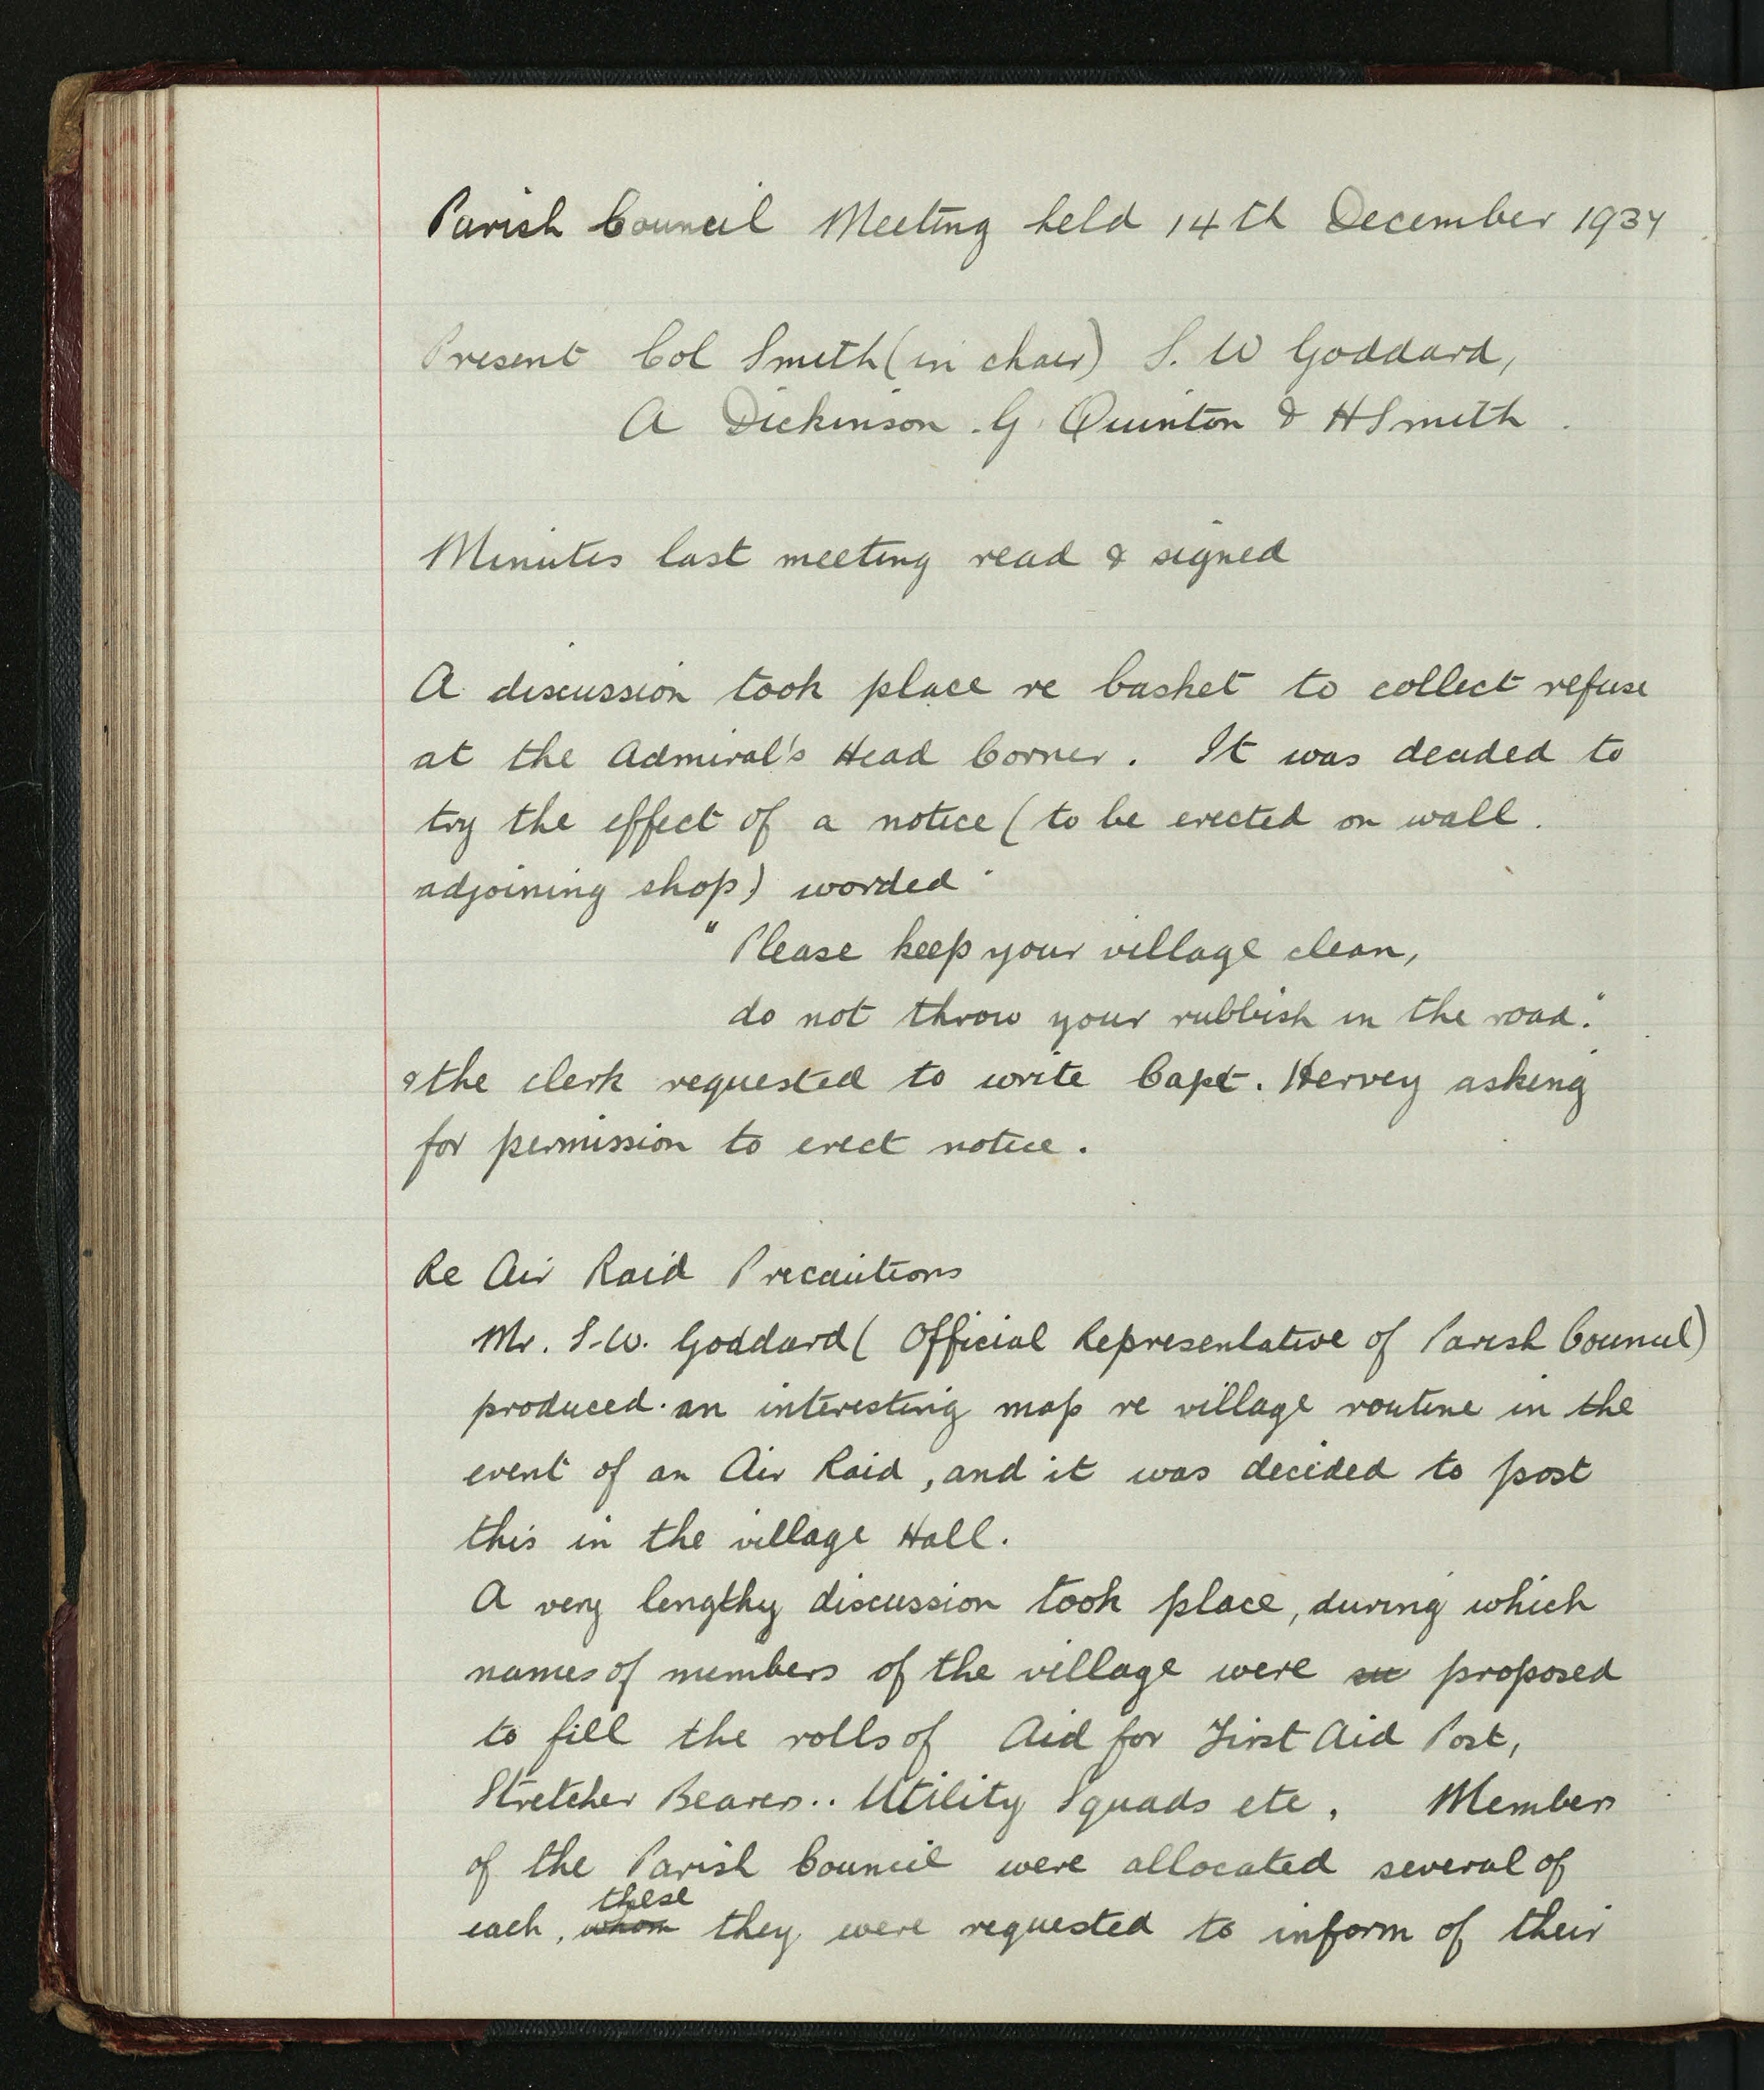 Parish Council Meeting held 14th December 1937
Present Col Smith (in chair) S. W Goddard,
A Dickinson . G Quinton & H Smith .
Minutes last meeting read & signed
A discussion took place re basket to collect refuse
at the Admiral's Head Corner . It was decided to
try the effect of a notice ( to be erected on wall .
adjoining shop) worded
" Please keep your village clean,
do not throw your rubbish in the road."
& the clerk requested to write Capt. Hervey asking
for permission to erect notice .
Re Air Raid Precautions
Mr. S.W. Goddard ( Official Representative of Parish Council)
produced an interesting map re village routine in the
event of an Air Raid , and it was decided to post
this in the village Hall .
A very lengthy discussion took place, during which
names of members of the village were su proposed
to fill the rolls of Aid for First Aid Post,
Stretcher Bearers .. Utility Squads etc , Members
of the Parish Council were allocated several of
these
each , whom they were requested to inform of their